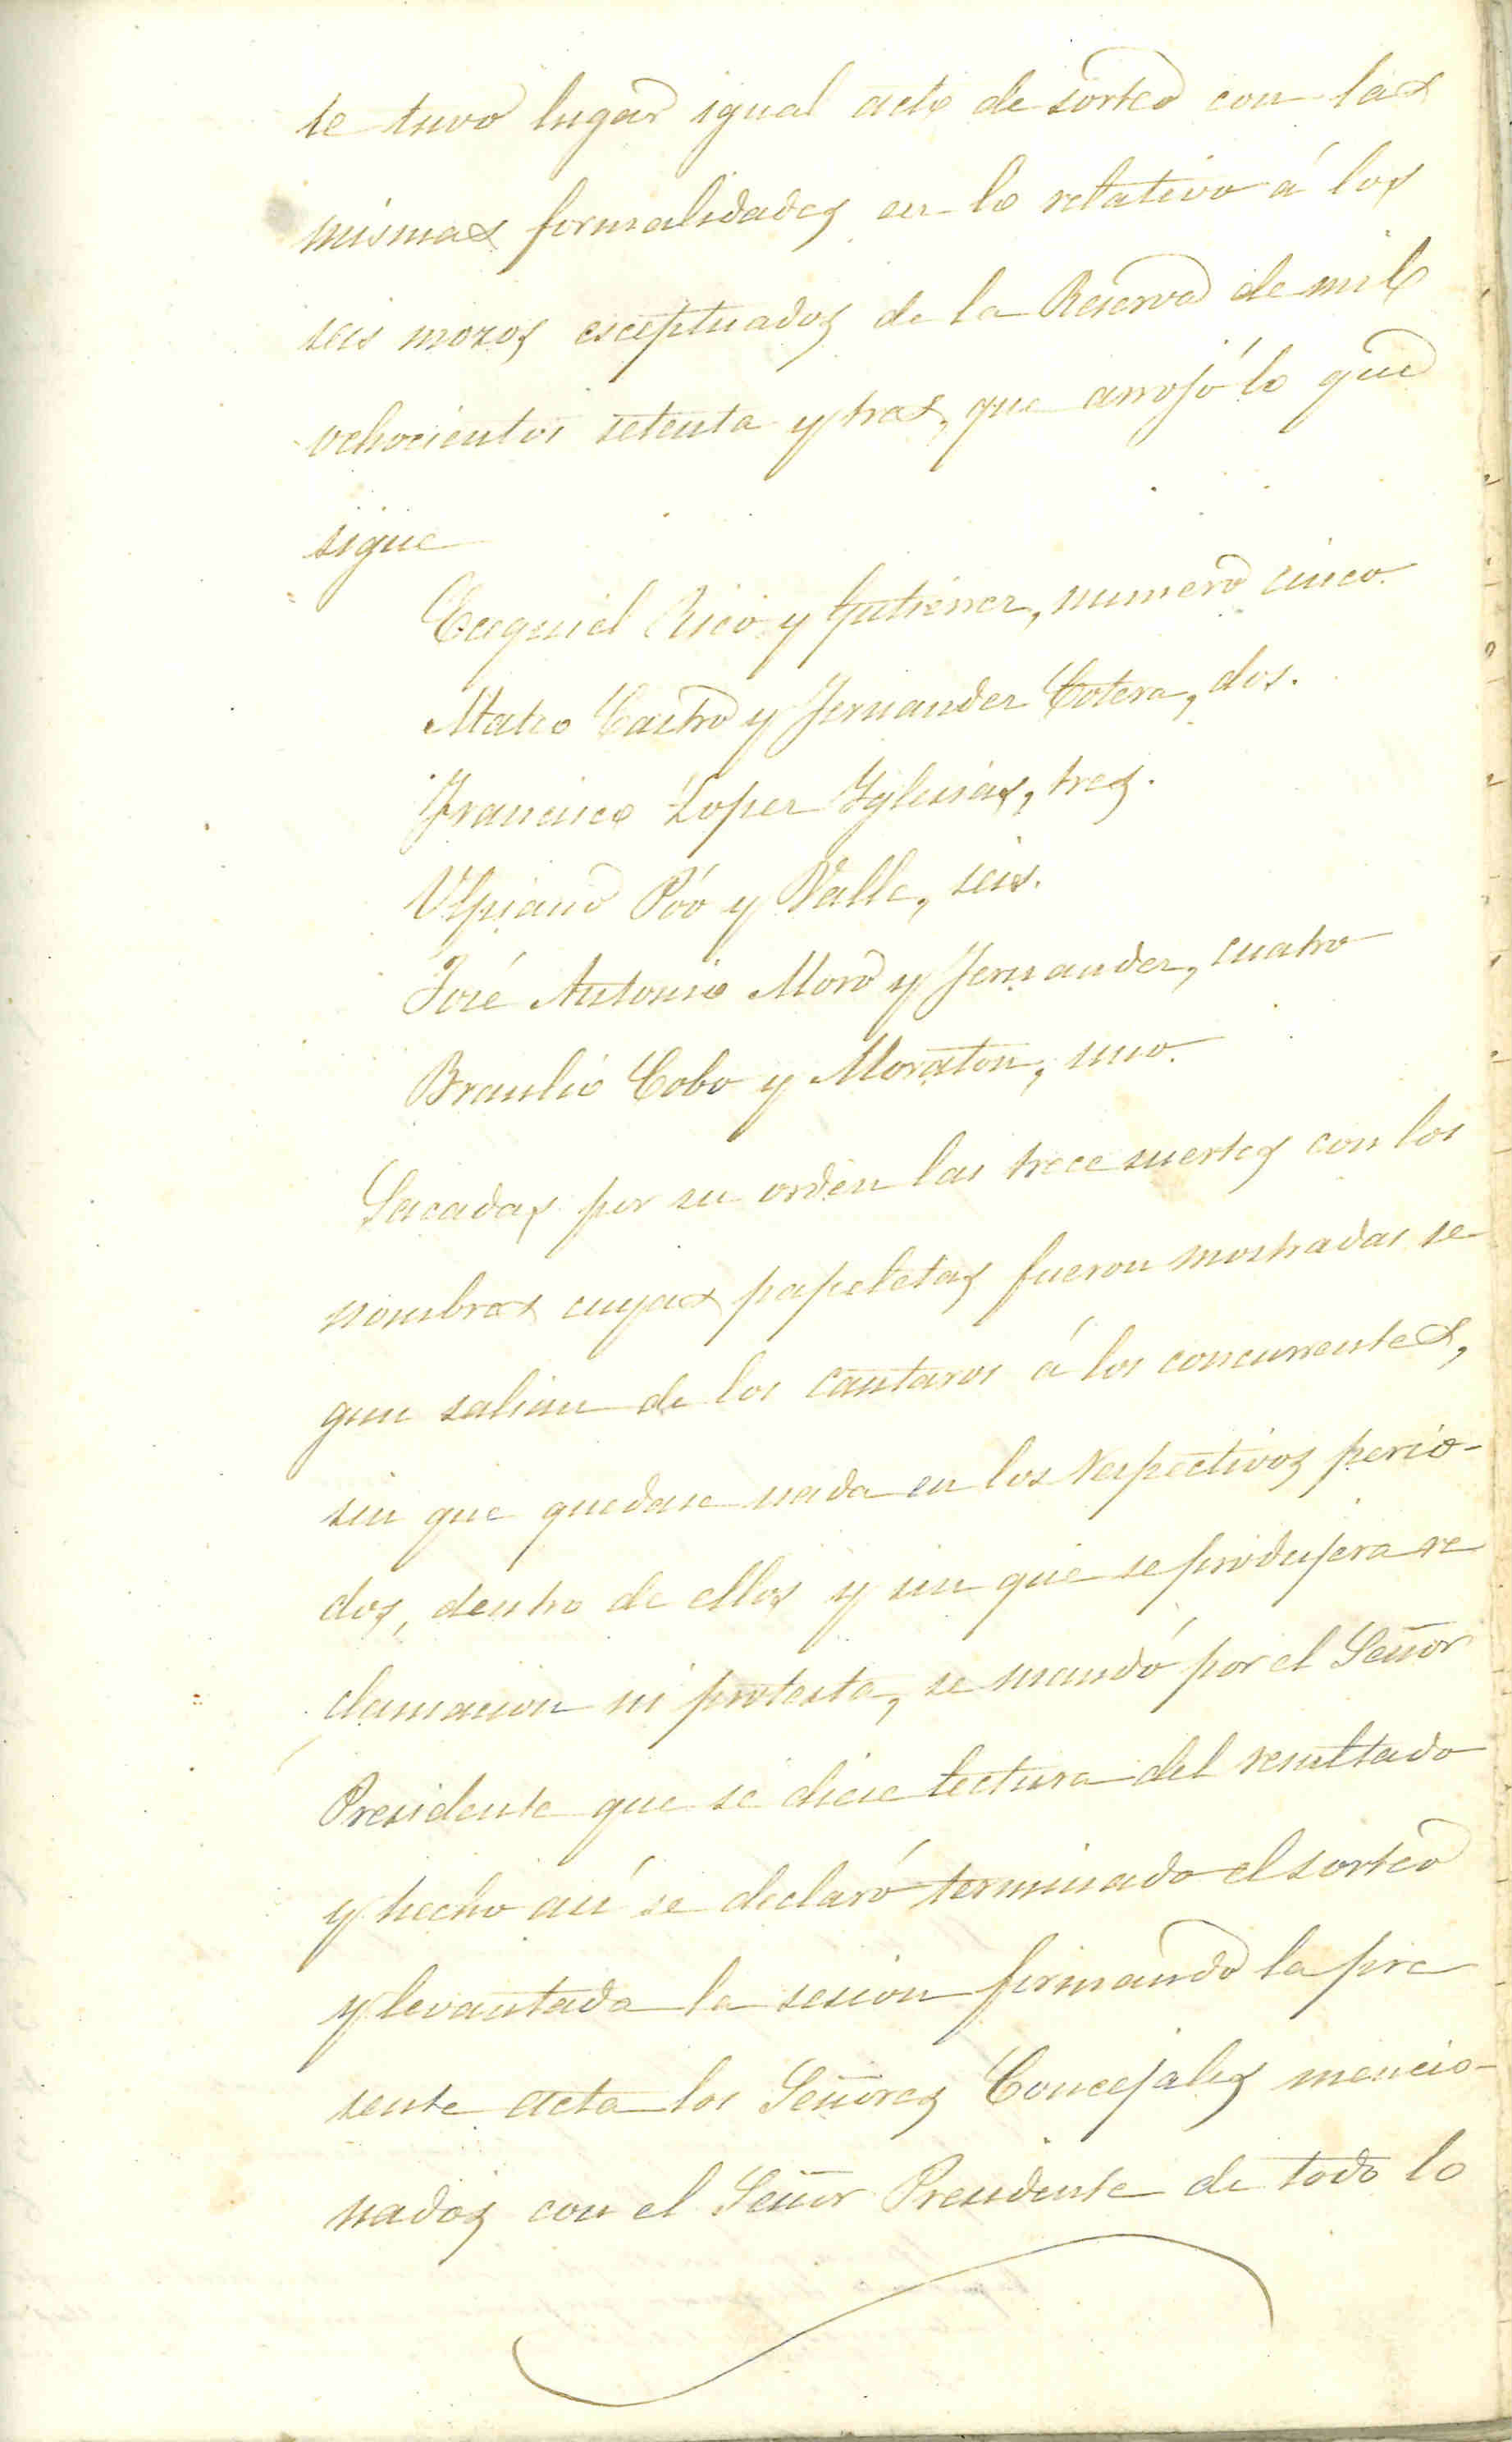 te tuvo lugar igual acto de sorteo con las
mismas formalidades en lo relativo á los
seis mozos esceptuados de la Reserva de mil
ochocientos setenta y tres, que arrojó lo que
sigue
Ecequiel Rico y Gutierrez, numero cinco.
Mateo Castro y Fernandez Cotera, dos.
Francisco Lopez Yglesias, tres.
Ulpiano Póo y Valle, seis.
José Antonio Moro y Fernandez, cuatro
Braulio Cobo y Moraton, uno.
Sacadas por su orden las trece suertes con los
nombres cuyas papeletas fueron mostradas se-
gun salian de los cántaros á los concurrentes,
sin que quedase nada en los respectivos perio-
dos, dentro de ellos y sin que se produjera re
clamacion ni protesta, se mandó por el Señor
Presidente que se diese lectura del resultado
y hecho así se declaró terminado el sorteo
y levantada la sesion firmando la pre
sente acta los Señores Concejales mencio-
nados con el Señor Presidente de todo lo